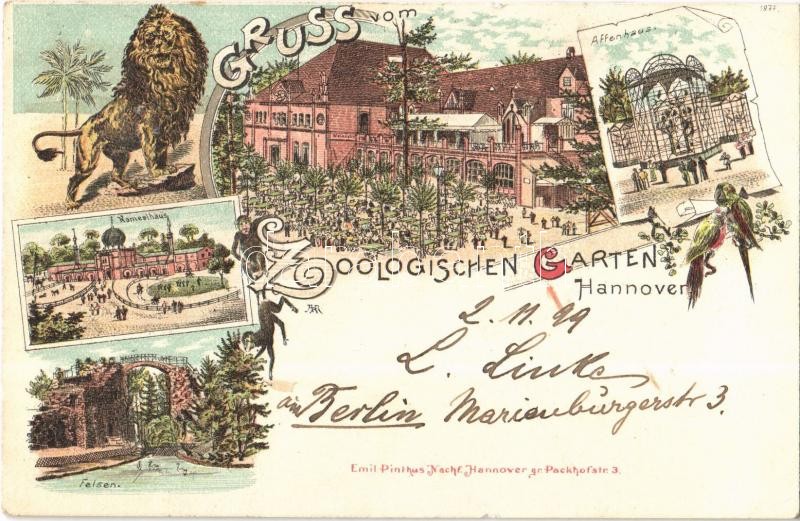 1877.
GRUSS vom
Affenhaus.
Kameelhaus
ZOOLOGISCHEN GARTEN
Hannover
2. 11. 99
L. Linke
in Berlin Marienburgerstr 3.
Felsen.
Emil Pinkus Nachf. Hannover gr. Packhofstr. 3.